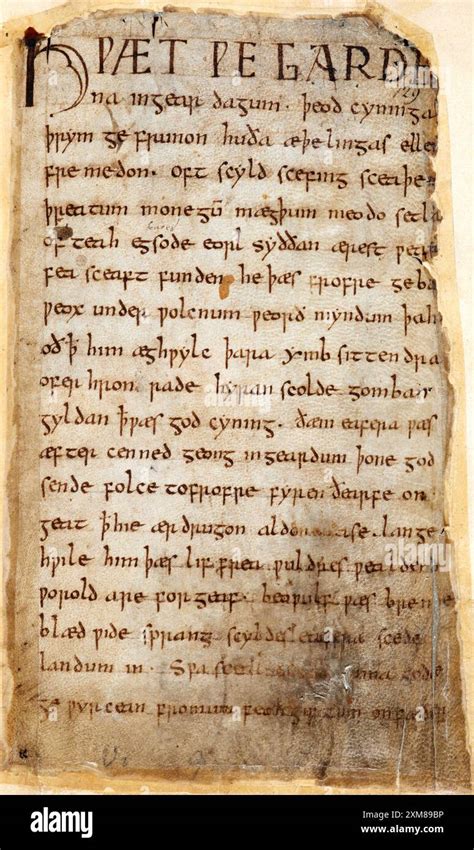 HǷÆT ǷE GARDE
129
na ingear dagum . þeod cyninga
þrym ge frunon huða æþelingas elle
fremedon . oft scyld scefing sceaþe
þreatum monegū mægþum meodo setla
of teah egsode eorl syððan ærest ƿear
fea sceaft funden he þæs frofre geba
ƿeox under ƿolcnum ƿeorð myndum þah
oð ꝥ him æghƿylc þara ymb sittendra
ofer hron rade hyran scolde gomban
gyldan ꝥ ƿæs god cyning . ðæm eafera ƿæs
æfter cenned geong ingeardum þone god
sende folce tofrofre fyren ðearfe on
geat ꝥ hie ær drugon aldor ase . lange
hƿile him þæs lif frea ƿuldres ƿealden
ƿorold are for geaf . beoƿulf ƿæs breme
blæd ƿide sprang scyldes eafera scede
landum in . Sƿa sceal guma gode
ge ƿyrcean fromum feoh giftum on fæder
alamy
Image ID: 2XM89BP
www.alamy.com